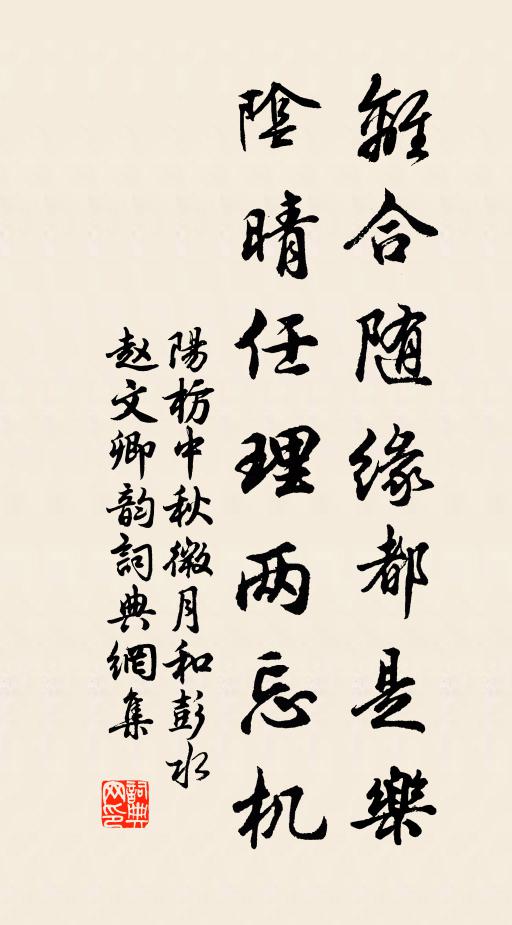 離合随緣都是樂
陰晴任理两忘机
陽枋中秋微月和彭水
赵文卿韵詞典網集
詞典网印